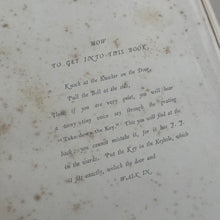 HOW
TO GET INTO THIS BOOK.
Knock at the Knocker on the Door,
Pull the Bell at the side,
Then, if you are very quiet, you will hear
a teeny tiny voice say through the grating
"Take down the Key." This you will find at the
back: you cannot mistake it, for it has J. J.
in the wards. Put the Key in the Keyhole, which
it fits exactly, unlock the door and
WALK IN.